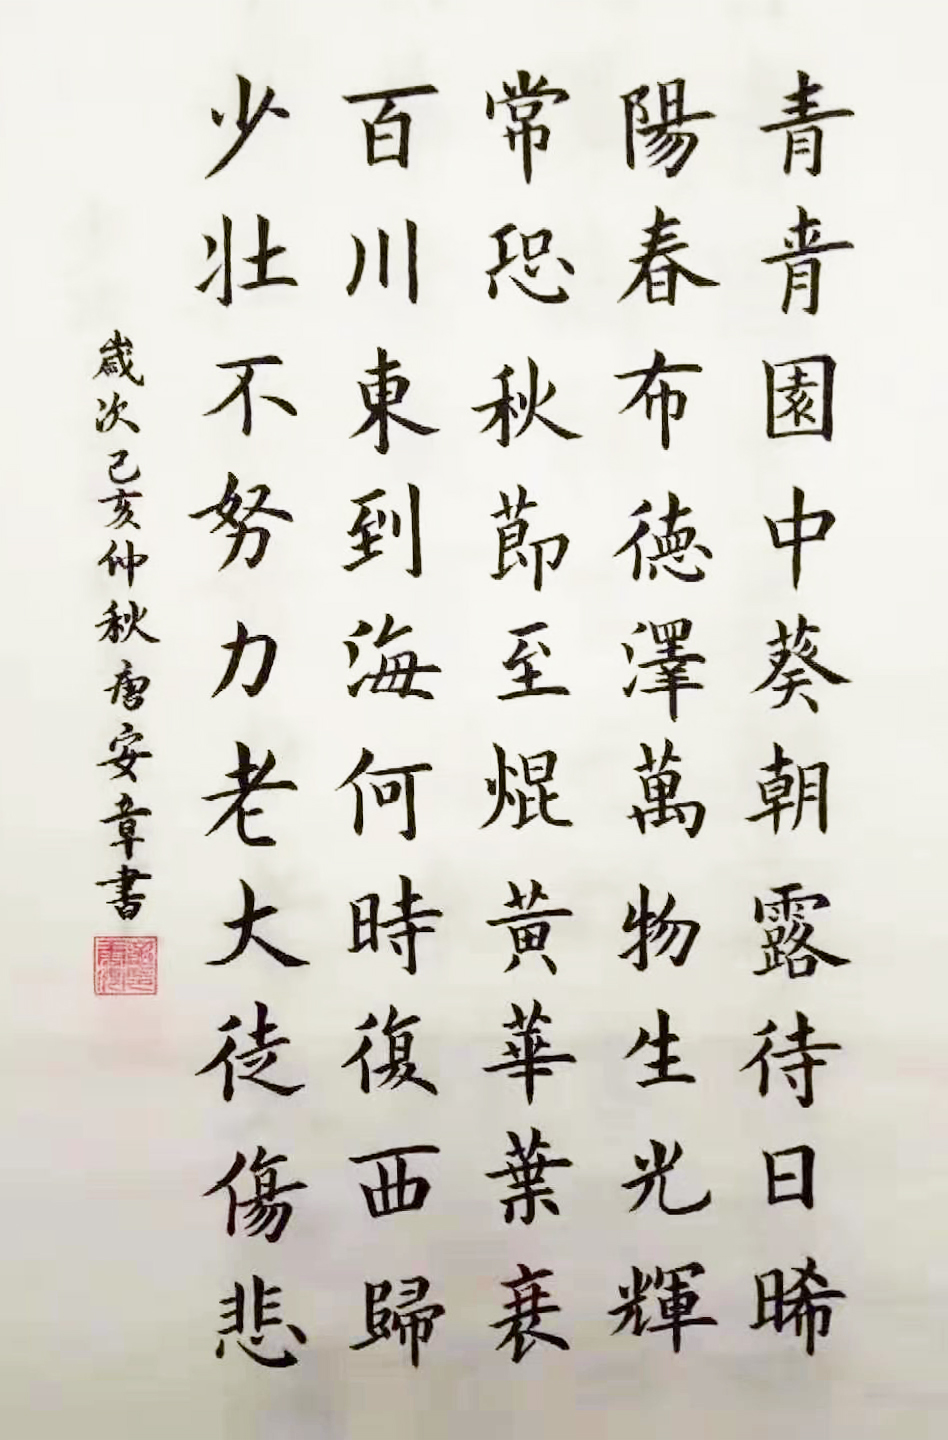 青青園中葵朝露待日晞
陽春布德澤萬物生光輝
常恐秋節至焜黃華葉衰
百川東到海何時復西歸
少壯不努力老大徒傷悲
歲次己亥仲秋唐安章書